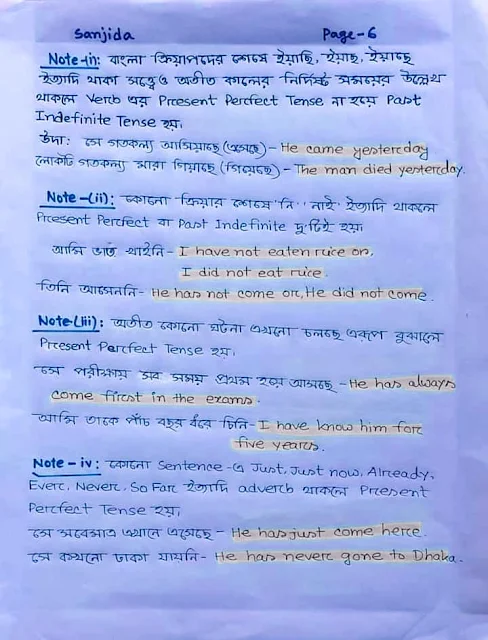 Sanjida Page-6
Note-(i): বাংলা ক্রিয়াপদের শেষে ইয়াছি, ইয়াছ, ইয়াছে
ইত্যাদি থাকা সত্ত্বেও অতীত কালের নির্দিষ্ট সময়ের উল্লেখ
থাকলে Verb এর Present Perfect Tense না হয়ে Past
Indefinite Tense হয়।
উদা: সে গতকল্য আসিয়াছে (এসেছে) - He came yesterday
লোকটি গতকল্য মারা গিয়াছে (গিয়েছে) - The man died yesterday.
Note-(ii): কোনো ক্রিয়ার শেষে 'নি', 'নাই' ইত্যাদি থাকলে
Present Perfect বা Past Indefinite দু'টিই হয়।
আমি ভাত খাইনি - I have not eaten rice or,
I did not eat rice.
তিনি আসেননি - He has not come or, He did not come.
Note-(iii): অতীত কোনো ঘটনা এখনো চলছে এরূপ বুঝালে
Present Perfect Tense হয়।
সে পরীক্ষায় সব সময় প্রথম হয়ে আসছে - He has always
come first in the exams.
আমি তাকে পাঁচ বছর ধরে চিনি - I have know him for
five years.
Note-iv: কোনো Sentence-এ Just, Just now, Already,
Ever, Never, So Far ইত্যাদি adverb থাকলে Present
Perfect Tense হয়।
সে সবেমাত্র এখানে এসেছে - He has just come here.
সে কখনো ঢাকা যায়নি - He has never gone to Dhaka.